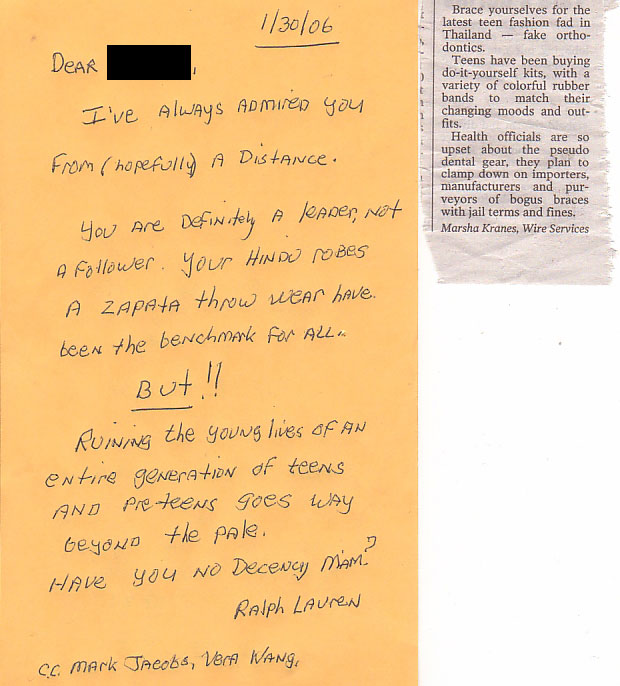 1/30/06
Dear
I've always admired you
from (hopefully) a distance.
You are definitely a leader, not
a follower. Your Hindu robes
a Zapata throw wear have
been the benchmark for all.
But!!
Ruining the young lives of an
entire generation of teens
and preteens goes way
beyond the pale.
Have you no decency Mam?
Ralph Lauren
c.c. Mark Jacobs, Vera Wang,
Brace yourselves for the
latest teen fashion fad in
Thailand — fake ortho-
dontics.
Teens have been buying
do-it-yourself kits, with a
variety of colorful rubber
bands to match their
changing moods and out-
fits.
Health officials are so
upset about the pseudo
dental gear, they plan to
clamp down on importers,
manufacturers and pur-
veyors of bogus braces
with jail terms and fines.
Marsha Kranes, Wire Services